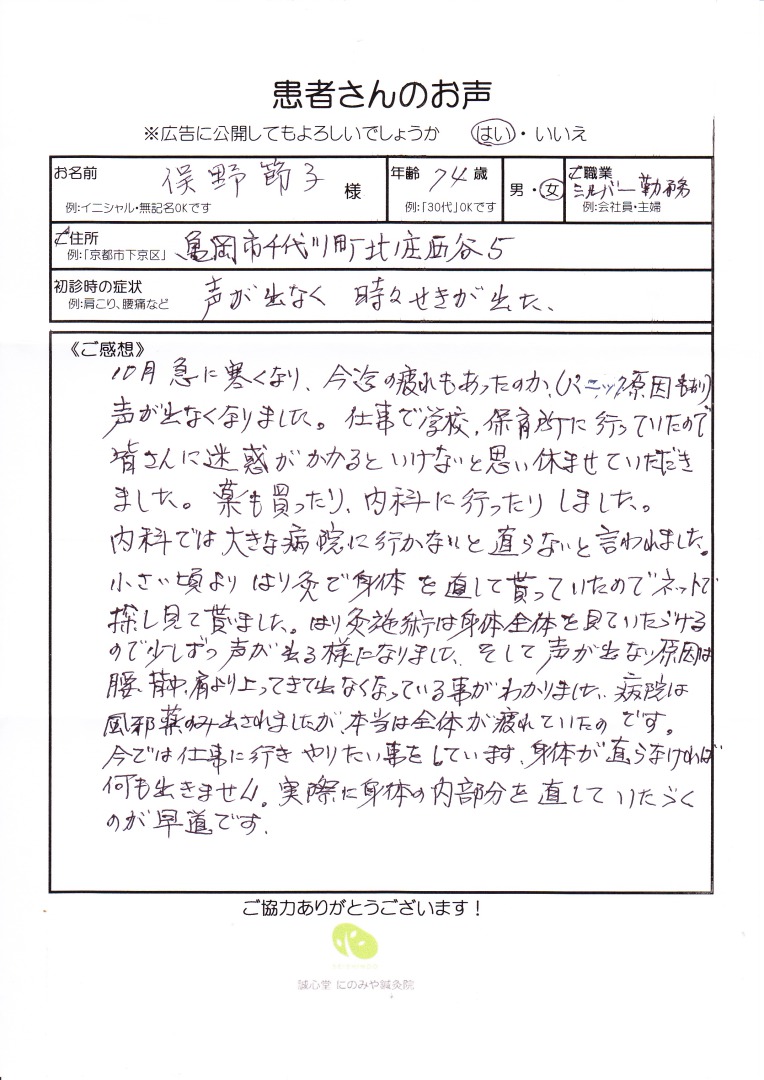 患者さんのお声
※広告に公開してもよろしいでしょうか　はい・いいえ
お名前 俣野節子 様 年齢 74 歳 男・女 ご職業 シルバー勤務
例:イニシャル・無記名OKです 例:「30代」OKです 例:会社員・主婦
ご住所 亀岡市千代川町北ノ庄西谷5
例:「京都市下京区」
初診時の症状 声が出なく 時々せきが出た、
例:肩こり、腰痛など
《ご感想》
10月急に寒くなり、今迄の疲れもあったのか、(パニック原因もあり)
声が出なくなりました。仕事で学校、保育所に行っていたので
皆さんに迷惑がかかるといけないと思い休ませていただき
ました。薬も買ったり、内科に行ったりしました。
内科では大きな病院に行かないと直らないと言われました。
小さい頃よりはり灸で身体を直して貰っていたのでネットで
探し見て貰ました。はり灸施術は身体全体を見ていただける
ので少しずつ声が出る様になりました、そして声が出ない原因は
腰、背中、肩より上ってきて出なくなっている事がわかりました、病院は
風邪薬のみ出されましたが、本当は全体が疲れていたのです。
今では仕事に行きやりたい事をしています、身体が直らなければ
何も出きません。実際に身体の内部分を直していただく
のが早道です.
ご協力ありがとうございます!
誠心堂 にのみや鍼灸院